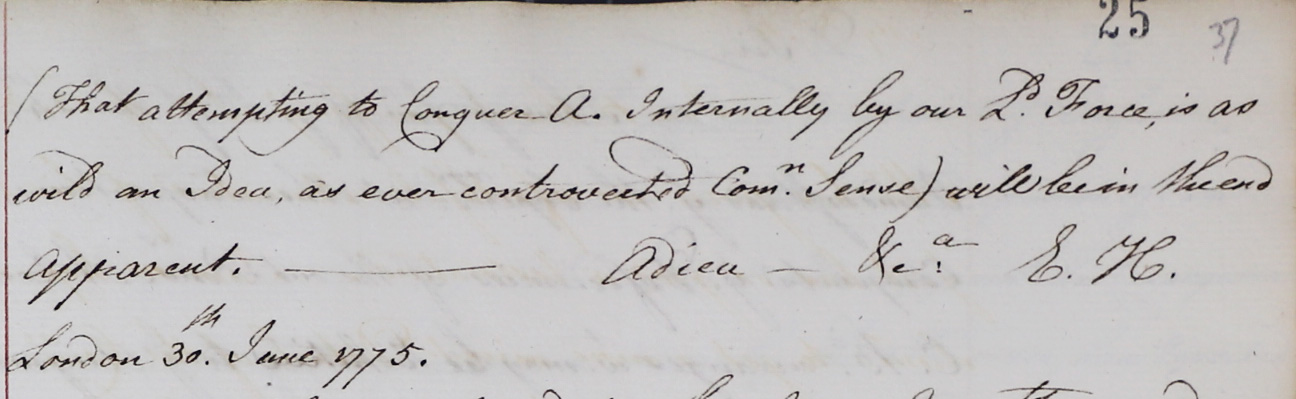 25 37
(That attempting to Conquer A. Internally by our Ld. Force, is as
wild an Idea, as ever controverted Comn. Sense) will be in the end
apparent. ———— Adieu — &c:a E. H.
London 30th. June 1775.